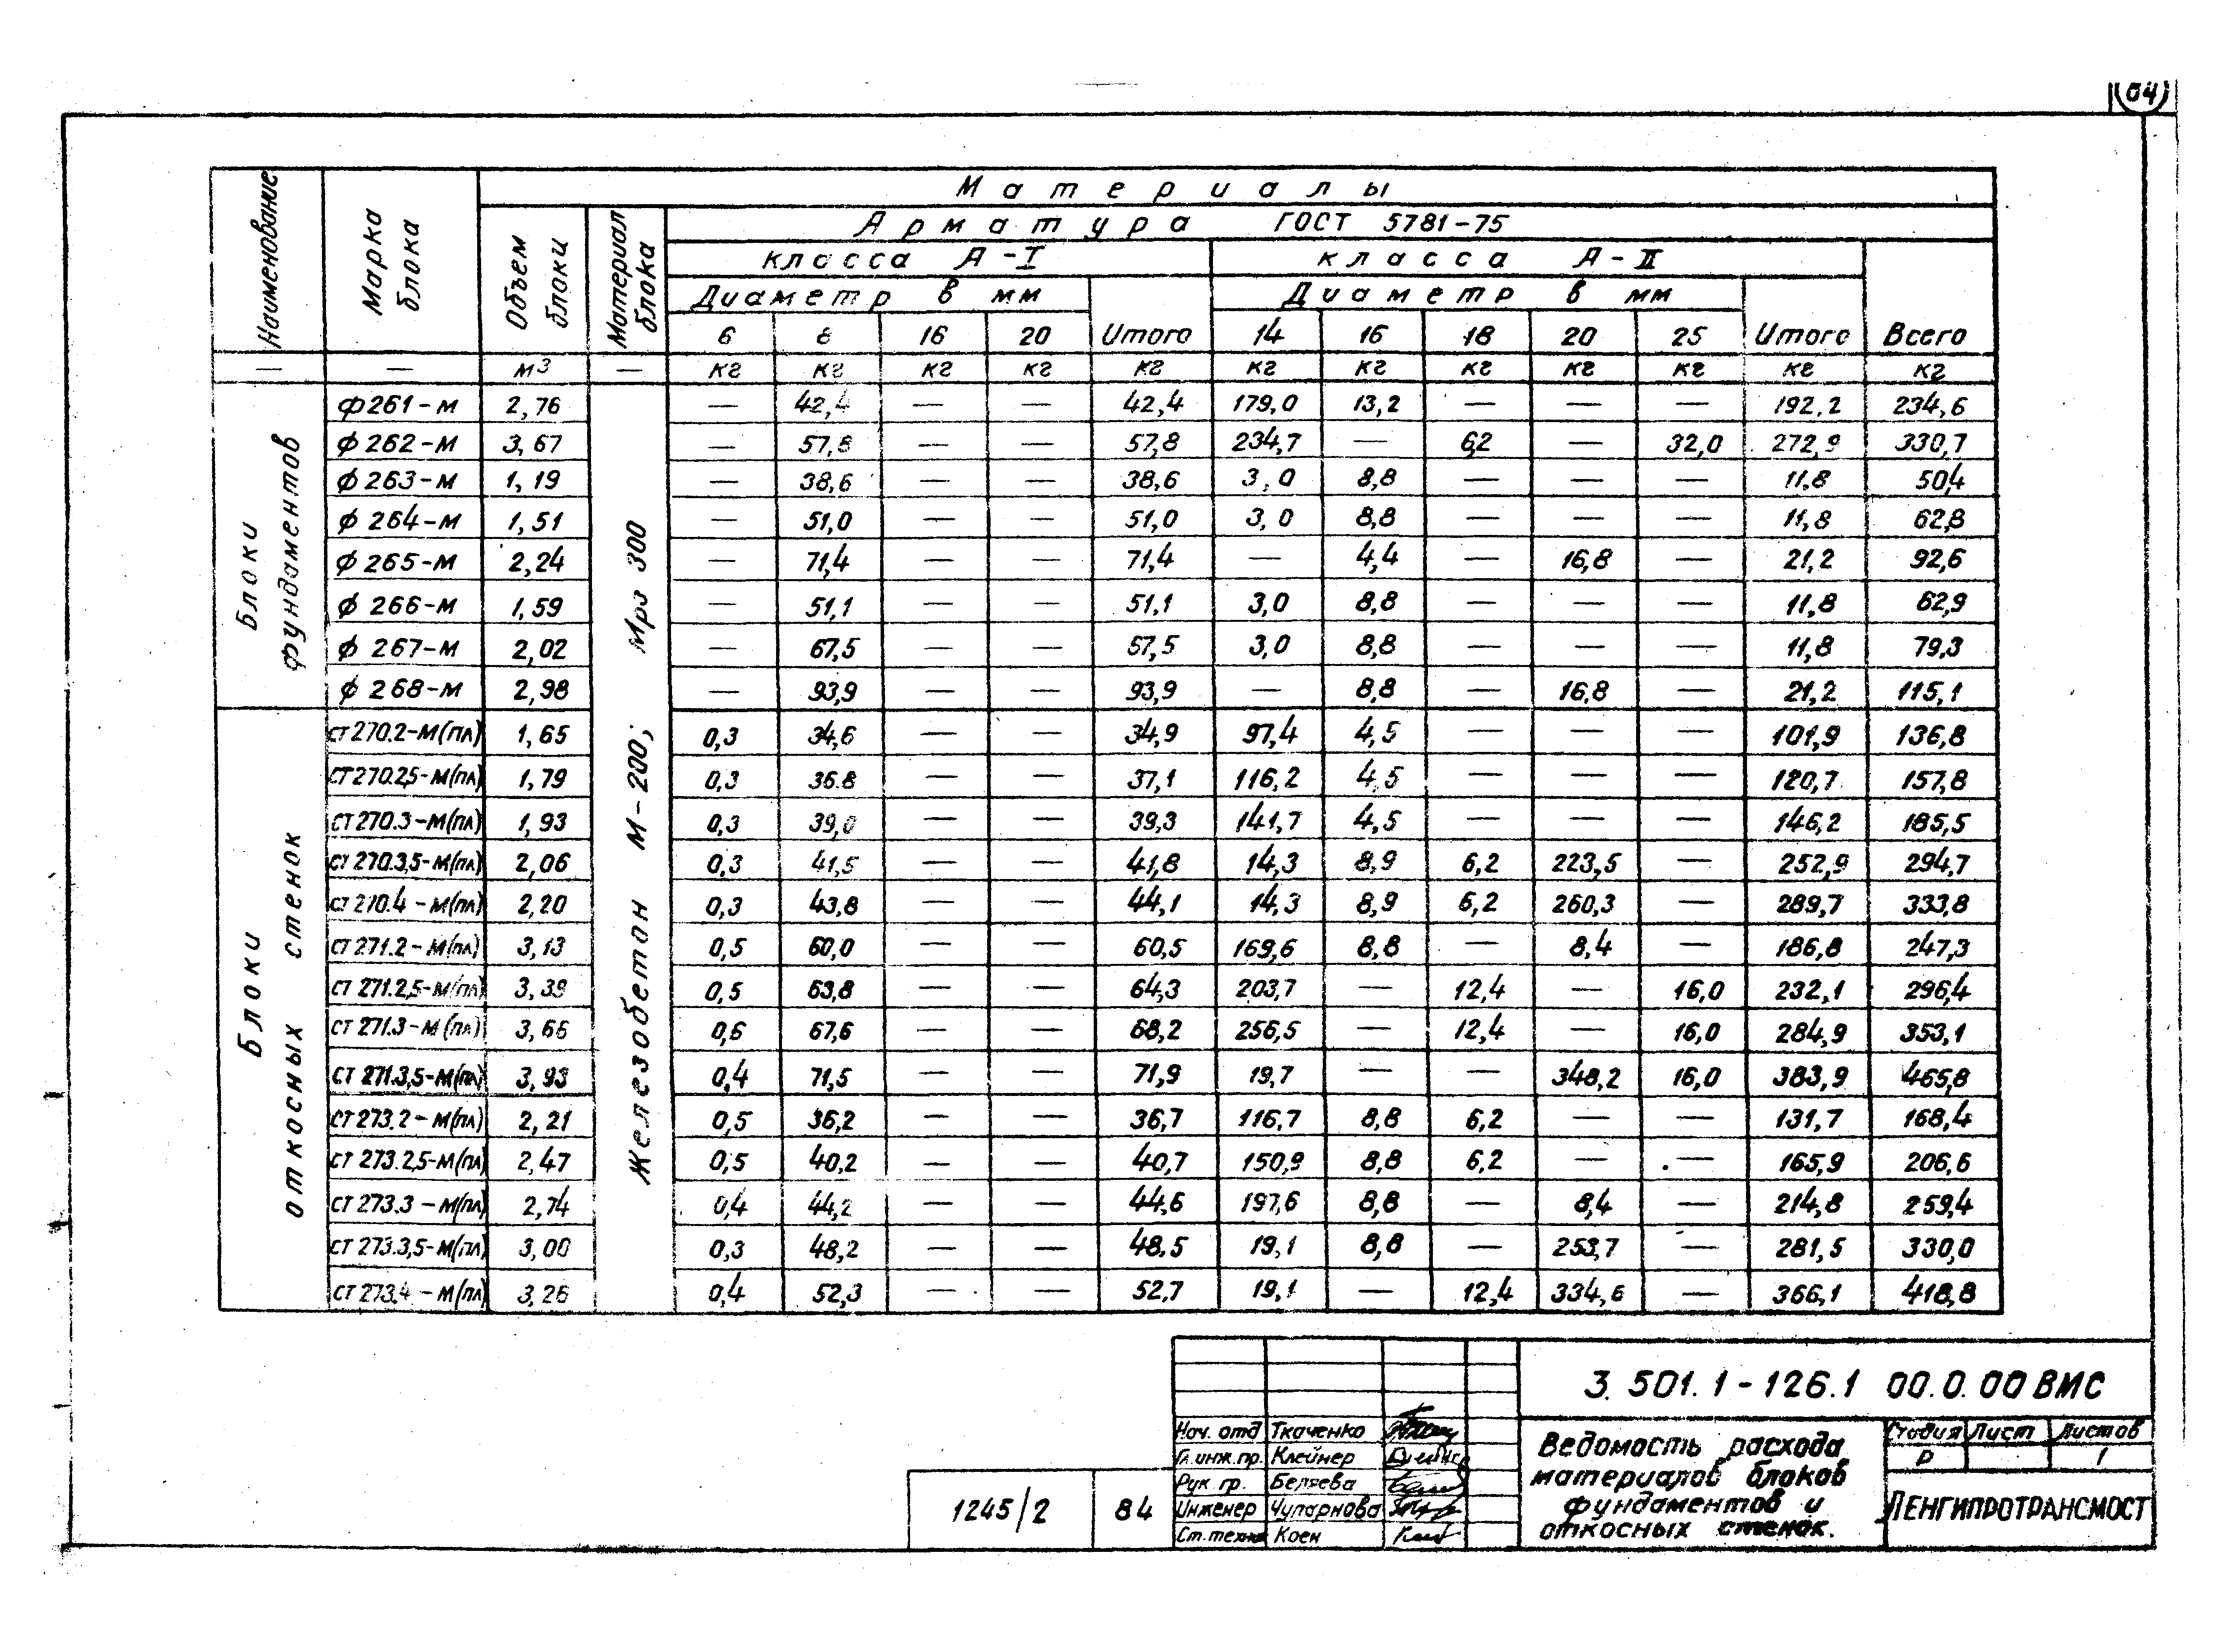 64
Материалы
Арматура ГОСТ 5781-75
Наименование Марка блока Объем блоки Материал блока класса А-I класса А-II
Диаметр в мм Диаметр в мм
6 8 16 20 Итого 14 16 18 20 25 Итого Всего
— — м3 — кг кг кг кг кг кг кг кг кг кг кг кг
Блоки фундаментов
Железобетон М-200; Мрз 300
ф261-м 2,76 — 42,4 — — 42,4 179,0 13,2 — — — 192,2 234,6
ф262-м 3,67 — 57,8 — — 57,8 234,7 — 6,2 — 32,0 272,9 330,7
ф263-м 1,19 — 38,6 — — 38,6 3,0 8,8 — — — 11,8 50,4
ф264-м 1,51 — 51,0 — — 51,0 3,0 8,8 — — — 11,8 62,8
ф265-м 2,24 — 71,4 — — 71,4 — 4,4 — 16,8 — 21,2 92,6
ф266-м 1,59 — 51,1 — — 51,1 3,0 8,8 — — — 11,8 62,9
ф267-м 2,02 — 67,5 — — 67,5 3,0 8,8 — — — 11,8 79,3
ф268-м 2,98 — 93,9 — — 93,9 — 8,8 — 16,8 — 21,2 115,1
Блоки откосных стенок
СТ270.2-М(пл) 1,65 0,3 34,6 — — 34,9 97,4 4,5 — — — 101,9 136,8
СТ270.2,5-М(пл) 1,79 0,3 36.8 — — 37,1 116,2 4,5 — — — 120,7 157,8
СТ270.3-М(пл) 1,93 0,3 39,0 — — 39,3 141,7 4,5 — — — 146,2 185,5
СТ270.3,5-М(пл) 2,06 0,3 41,5 — — 41,8 14,3 8,9 6,2 223,5 — 252,9 294,7
СТ270.4-М(пл) 2,20 0,3 43,8 — — 44,1 14,3 8,9 6,2 260,3 — 289,7 333,8
СТ271.2-М(пл) 3,13 0,5 60,0 — — 60,5 169,6 8,8 — 8,4 — 186,8 247,3
СТ271.2,5-М(пл) 3,39 0,5 63,8 — — 64,3 203,7 — 12,4 — 16,0 232,1 296,4
СТ271.3-М(пл) 3,66 0,6 67,6 — — 68,2 256,5 — 12,4 — 16,0 284,9 353,1
СТ271.3,5-М(пл) 3,93 0,4 71,5 — — 71,9 19,7 — — 348,2 16,0 383,9 465,8
СТ273.2-М(пл) 2,21 0,5 36,2 — — 36,7 116,7 8,8 6,2 — — 131,7 168,4
СТ273.2,5-М(пл) 2,47 0,5 40,2 — — 40,7 150,9 8,8 6,2 — — 165,9 206,6
СТ273.3-М(пл) 2,74 0,4 44,2 — — 44,6 197,6 8,8 — 8,4 — 214,8 259,4
СТ273.3,5-М(пл) 3,00 0,3 48,2 — — 48,5 19,1 8,8 — 253,7 — 281,5 330,0
СТ273.4-М(пл) 3,26 0,4 52,3 — — 52,7 19,1 — 12,4 334,6 — 366,1 418,8
3.501.1-126.1 00.0.00 ВМС
Нач. отд Ткаченко
Гл.инж.пр. Клейнер
Рук. гр. Беляева
Инженер Чупарнова
Ст.техн Коен
Ведомость расхода
материалов блоков
фундаментов и
откосных стенок.
Стадия Лист Листов
Р 1
ЛЕНГИПРОТРАНСМОСТ
1245/2 84